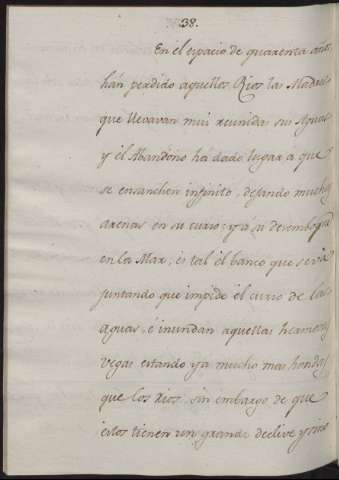 38.
En el espacio de quarenta años
hán perdido aquellos Rios las Madres
que llevavan mui reunidas sus Aguas
y él Abandono há dado lugar á que
se ensanchen infinito, dejando muchas
arenas en su curso; y á su desemboque
en la Mar, és tal él banco que se vá
juntando que impide él curso de las
aguas, é inundan aquellas hermosas
vegas estando ya mucho mas hondas
que los rios, sin embargo de que
éstos tienen un grande declive y sino